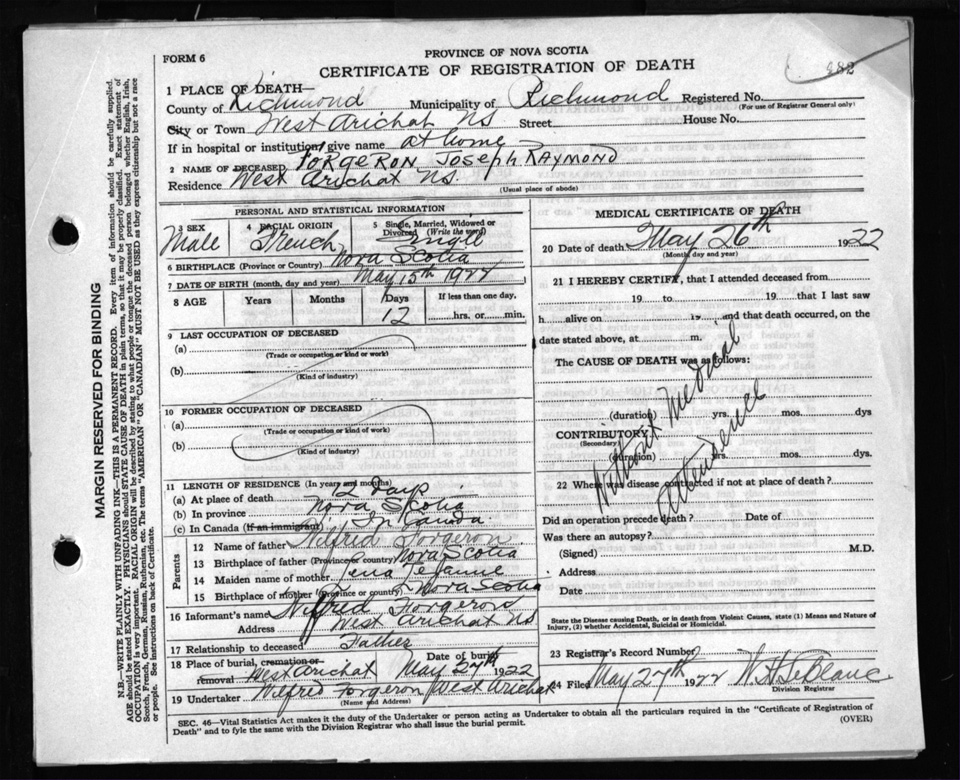 482
FORM 6
PROVINCE OF NOVA SCOTIA
CERTIFICATE OF REGISTRATION OF DEATH
1 PLACE OF DEATH—
County of Richmond Municipality of Richmond Registered No.
(For use of Registrar General only)
City or Town West Arichat NS Street House No.
If in hospital or institution give name at home
2 NAME OF DECEASED FORGERON JOSEPH RAYMOND
Residence West Arichat NS.
(Usual place of abode)
PERSONAL AND STATISTICAL INFORMATION
3 SEX 4 RACIAL ORIGIN 5 Single, Married, Widowed or Divorced (Write the word)
Male French Single
6 BIRTHPLACE (Province or Country) Nova Scotia
7 DATE OF BIRTH (month, day and year) May 15th 1922
8 AGE Years Months Days If less than one day,
12 hrs. or min.
9 LAST OCCUPATION OF DECEASED
(a)
(Trade or occupation or kind or work)
(b)
(Kind of industry)
10 FORMER OCCUPATION OF DECEASED
(a)
(Trade or occupation or kind of work)
(b)
(Kind of industry)
11 LENGTH OF RESIDENCE (In years and months)
(a) At place of death 12 days
(b) In province Nova Scotia
(c) In Canada (If an immigrant) In Canada.
Parents
12 Name of father Wilfred Forgeron
13 Birthplace of father (Province or country) Nova Scotia
14 Maiden name of mother Lena
15 Birthplace of mother (Province or county) Nova Scotia
16 Informant's name Wilfred Forgeron
Address West Arichat NS
17 Relationship to deceased Father
18 Place of burial, cremation or removal West Arichat Date of burial May 27th 1922
19 Undertaker Wilfred Forgeron West Arichat
(Name and Address)
MEDICAL CERTIFICATE OF DEATH
20 Date of death May 26th 1922
(Month, day and year)
21 I HEREBY CERTIFY, that I attended deceased from
19 to 19 that I last saw
h alive on 19 and that death occurred, on the
date stated above, at m.
The CAUSE OF DEATH was as follows:
Without Medical
Attendence
(duration) yrs. mos. dys
CONTRIBUTORY
(Secondary)
(duration) yrs. mos. dys
22 Where was disease contracted if not at place of death?
Did an operation precede death? Date of
Was there an autopsy?
(Signed) M.D.
Address
Date
State the Disease causing Death, or in death from Violent Causes, state (1) Means and Nature of
Injury, (2) whether Accidental, Suicidal or Homicidal.
23 Registrar's Record Number
24 Filed May 27th 1922 W. H. LeBlanc
Division Registrar
SEC. 46—Vital Statistics Act makes it the duty of the Undertaker or person acting as Undertaker to obtain all the particulars required in the "Certificate of Registration of
Death" and to fyle the same with the Division Registrar who shall issue the burial permit.
(OVER)
MARGIN RESERVED FOR BINDING
N.B.—WRITE PLAINLY WITH UNFADING INK—THIS IS A PERMANENT RECORD. Every item of information should be carefully supplied.
AGE should be stated EXACTLY. PHYSICIANS should STATE CAUSE OF DEATH in plain terms, so that it may be properly classified. Exact statement of
OCCUPATION is very important. RACIAL ORIGIN will be described by stating to what people or tongue the deceased person belonged, whether English, Irish,
Scotch, French, German, Russian, Ruthenian, etc. The terms "AMERICAN" or "CANADIAN" MUST NOT BE USED as they express citizenship but not a race
or people. See instructions on back of Certificate.